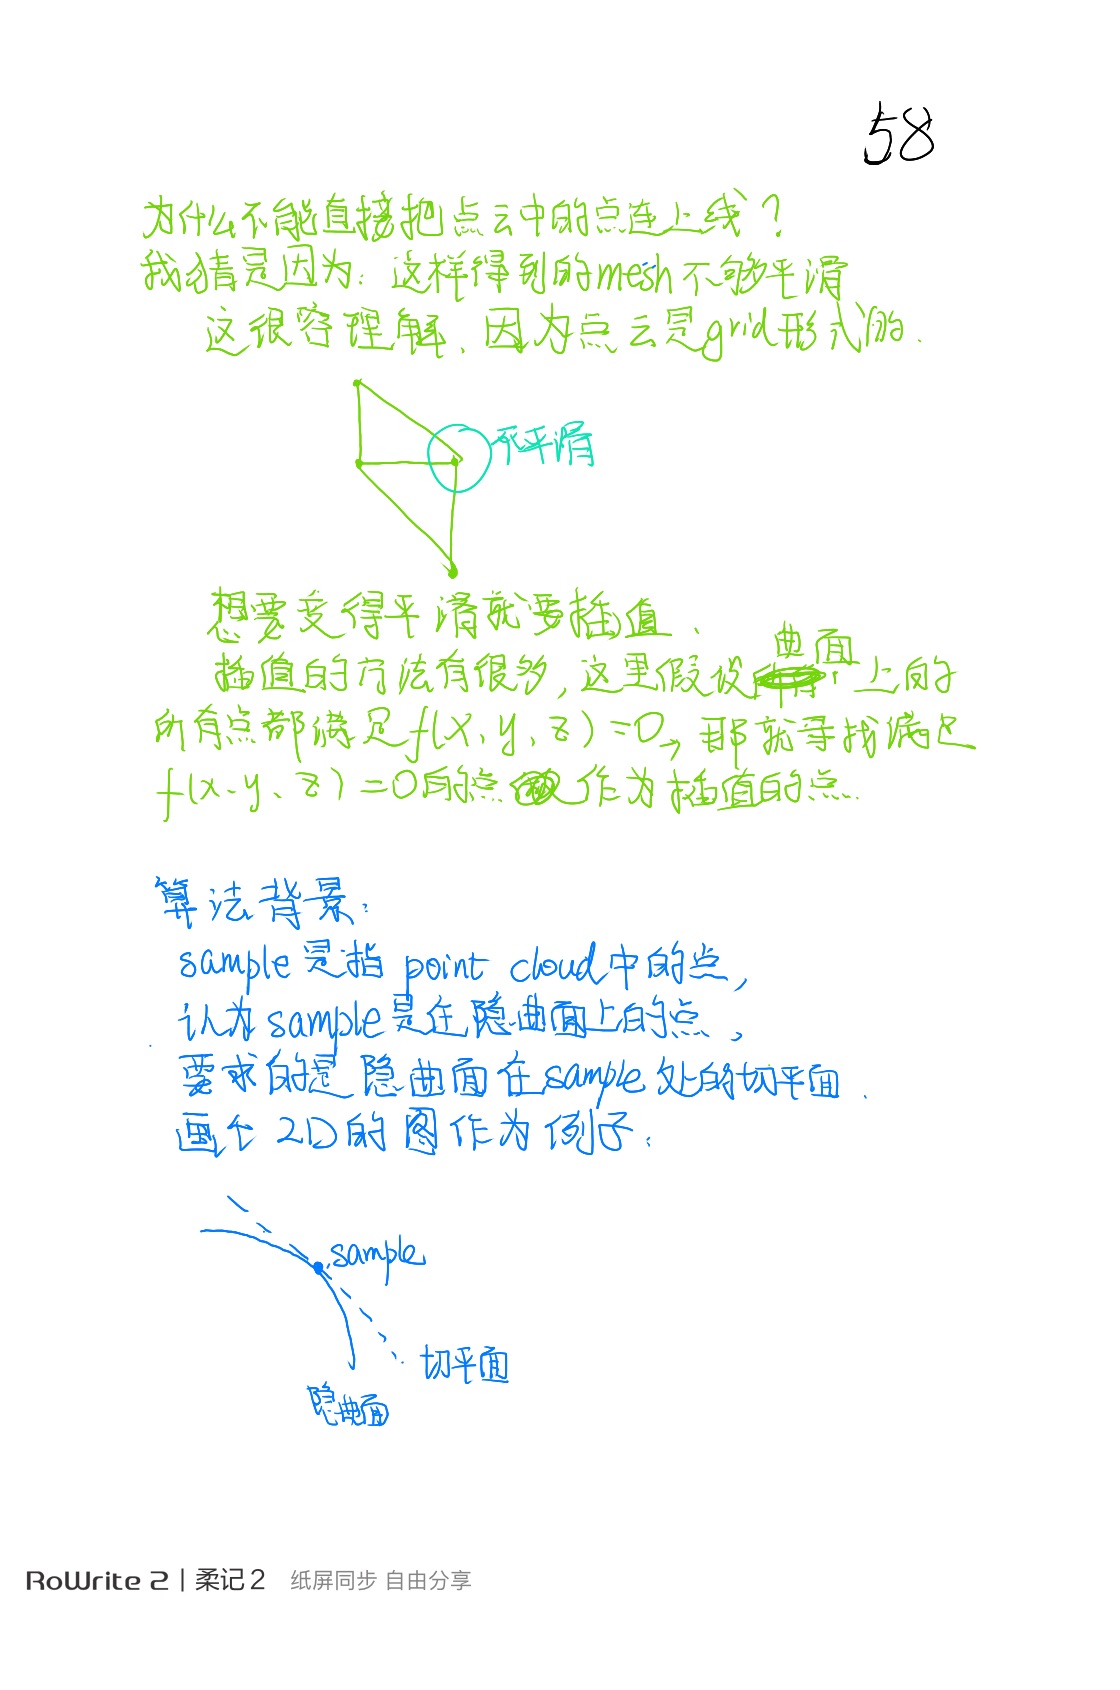 58
为什么不能直接把点云中的点连上线？
我猜是因为：这样得到的mesh不够平滑
这很容理解、因为点云是grid形式的.
不平滑
想要变得平滑就要插值、
曲面
插值的方法有很多,这里假设 上的
所有点都满足f(x、y、z)=0,那就寻找满足
f(x、y、z)=0的点 作为插值的点.
算法背景：
sample是指 point cloud中的点,
认为sample是在隐曲面上的点,
要求的是隐曲面在sample处的切平面.
画个2D的图作为例子：
sample
切平面
隐曲面
RoWrite 2 | 柔记2 纸屏同步 自由分享